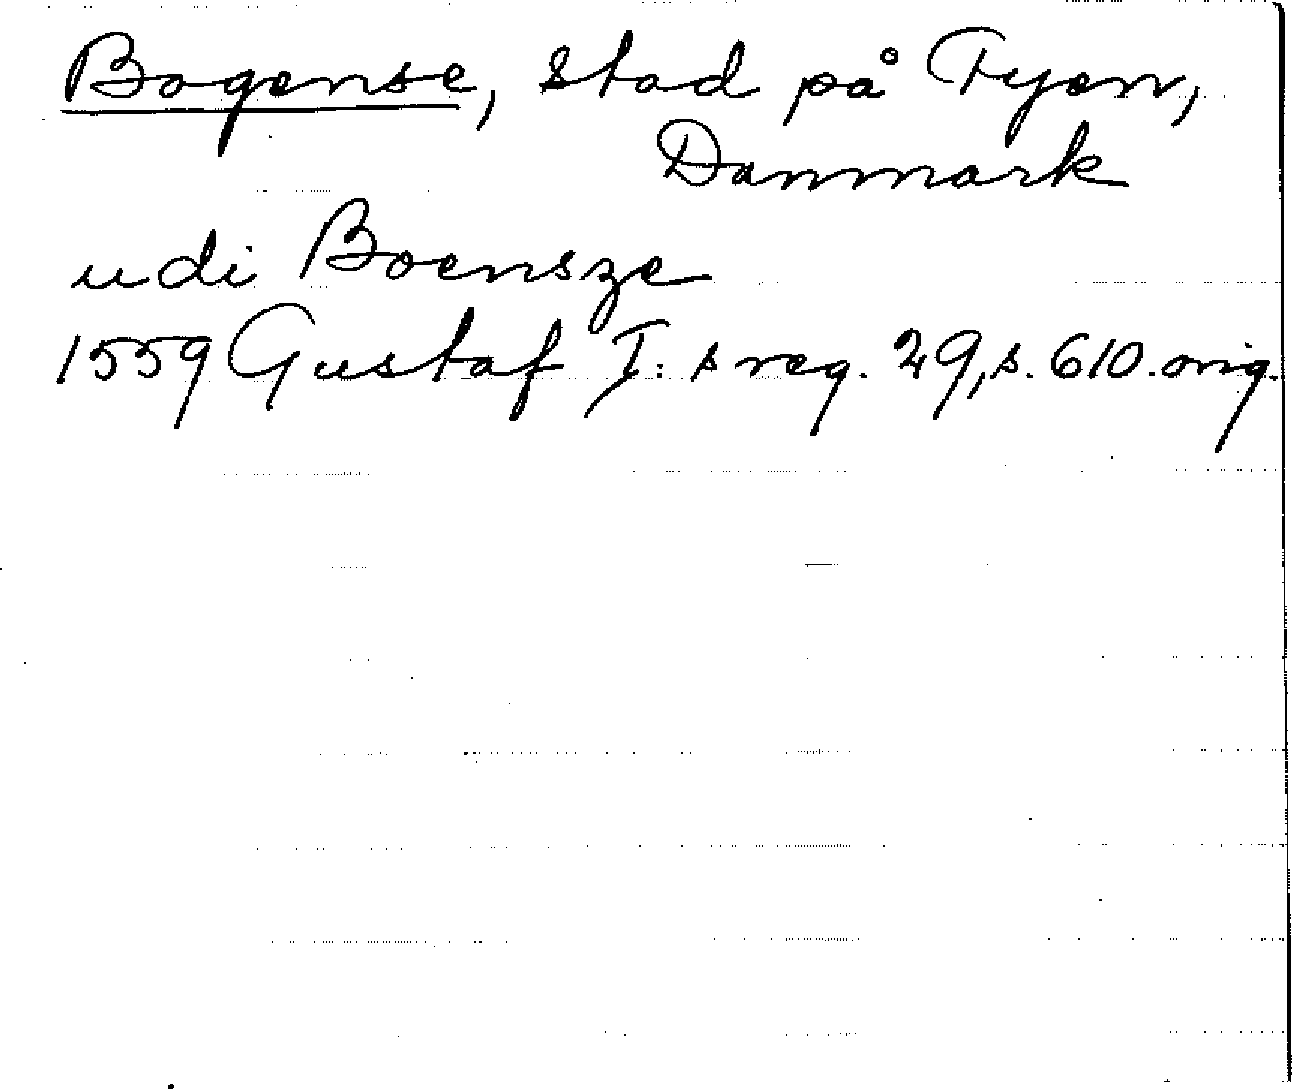 Bogense, stad på Fyen,
Danmark
udi Boensze
1559 Gustaf I: s reg. 29, s. 610. orig.